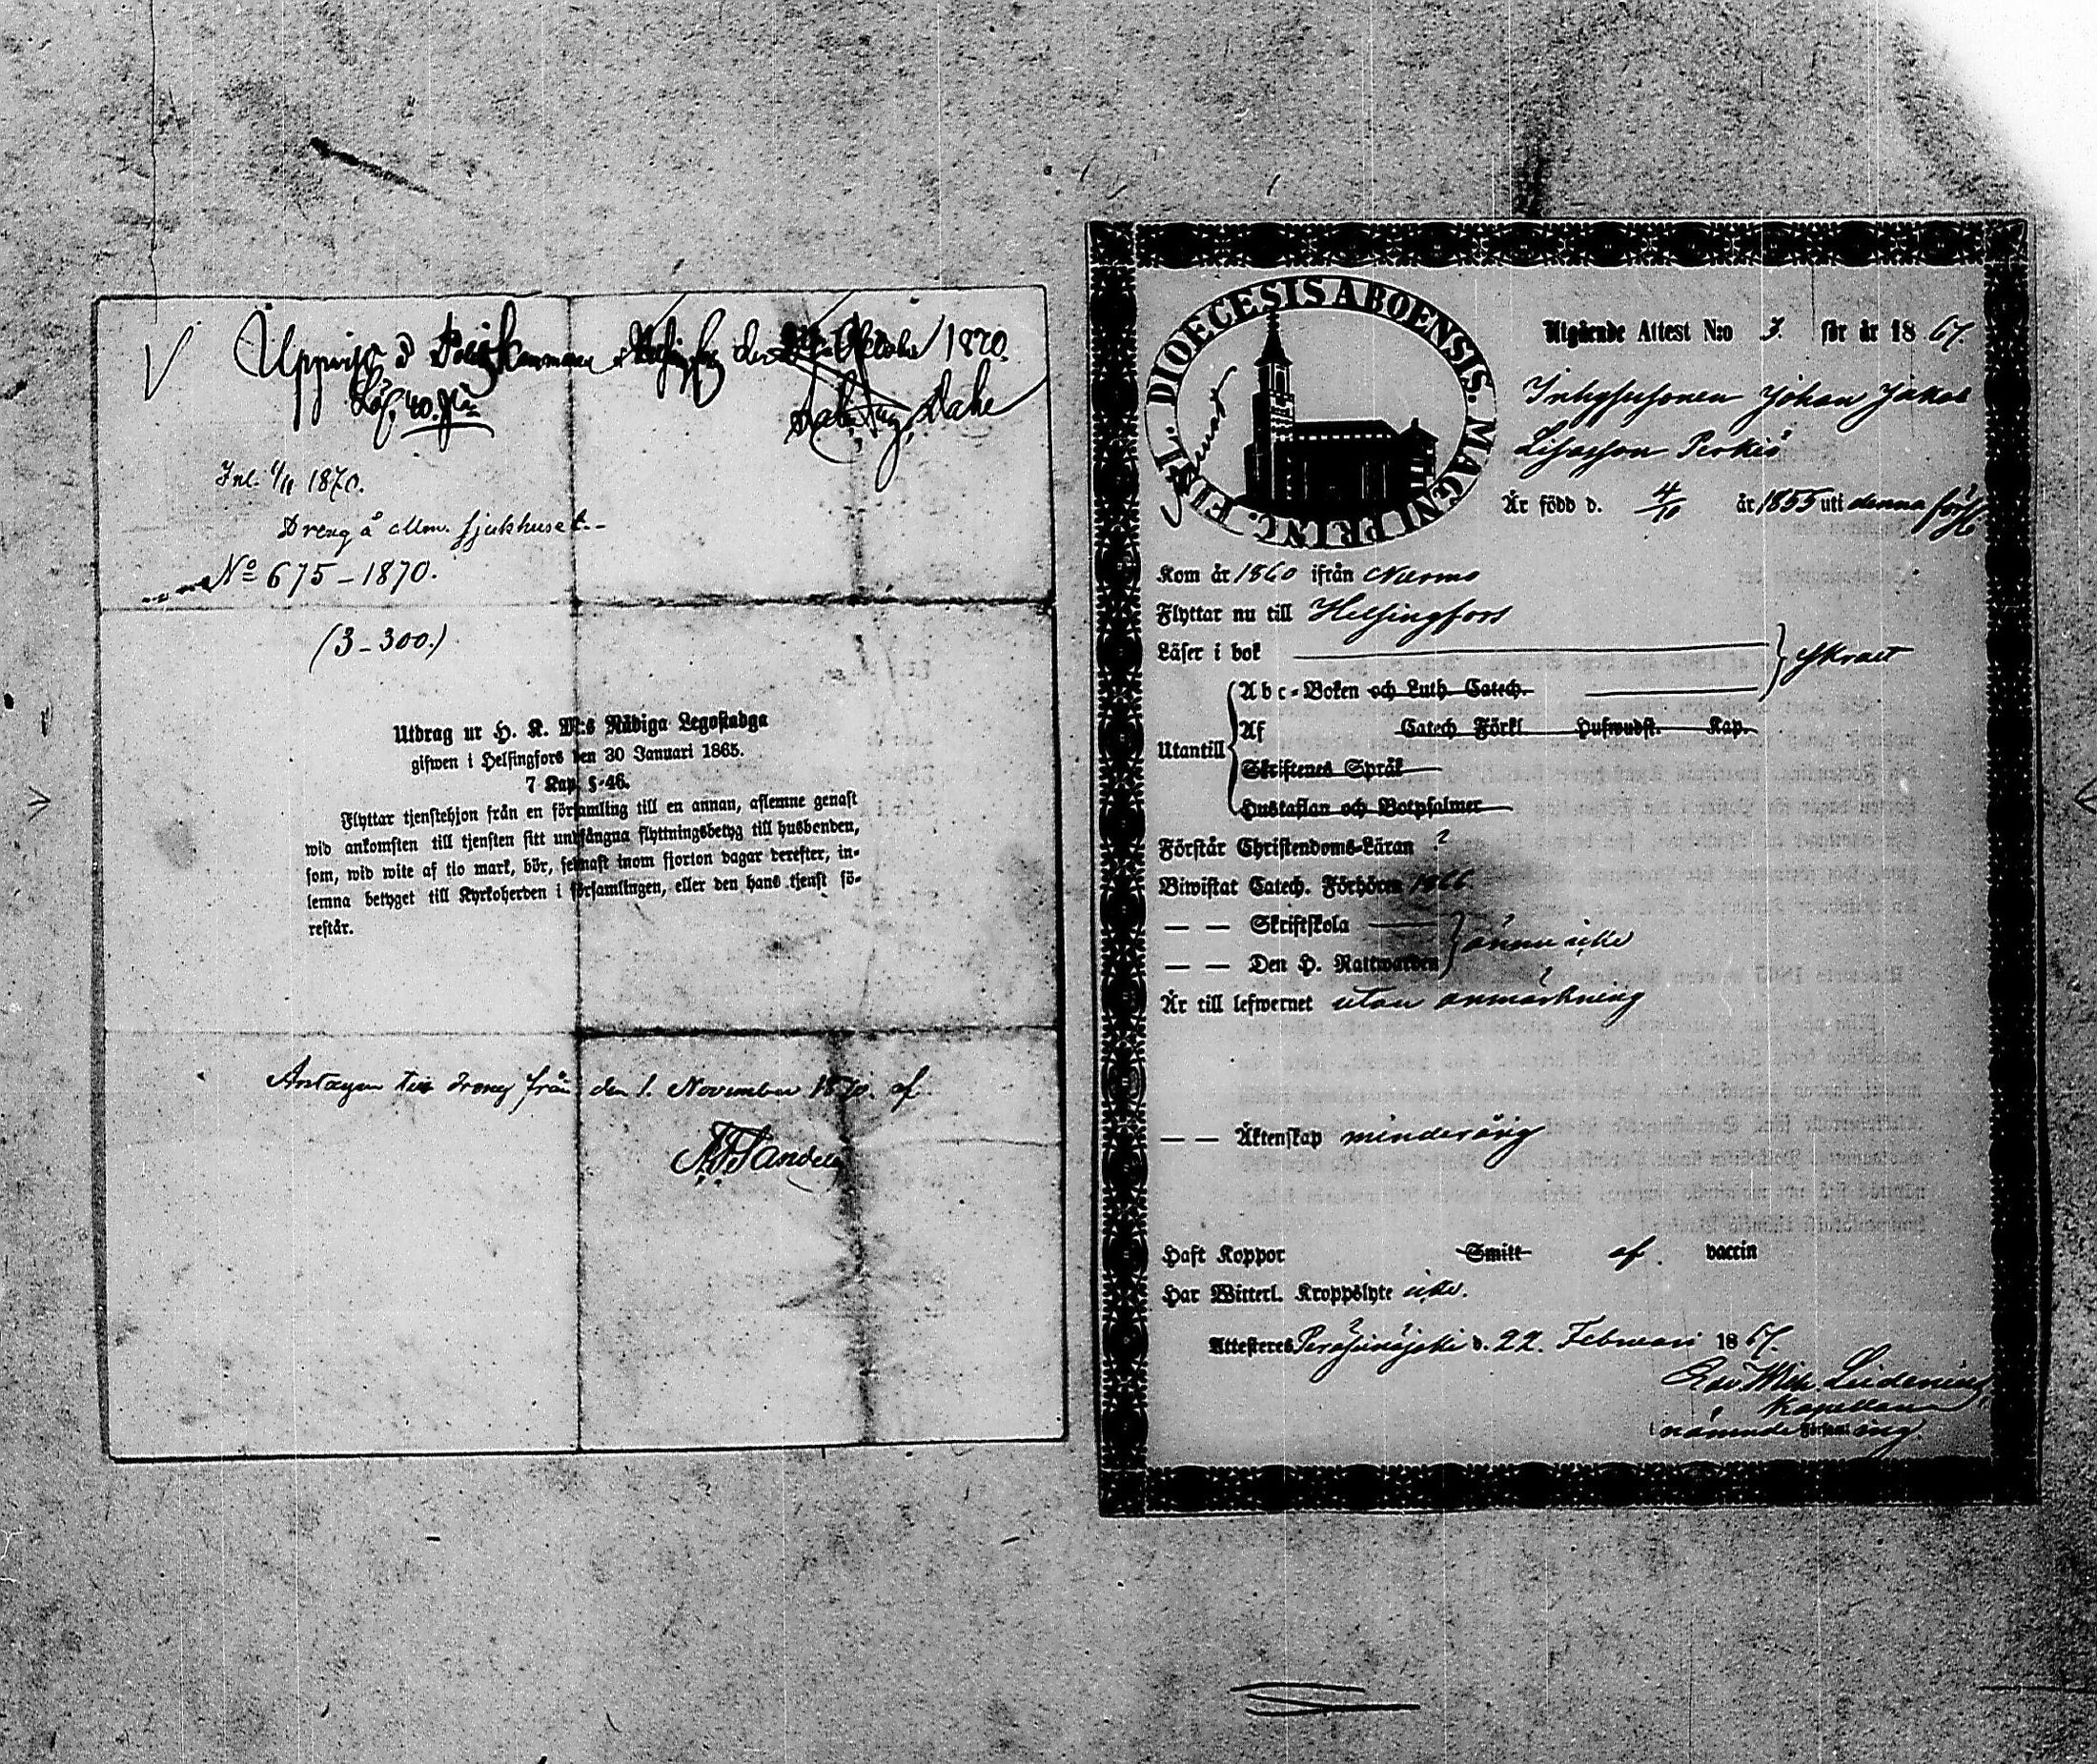 Uppvist å Poliskammaren i Helsingfors den Oktober 1870.
Lös. 40. p:ni
Inl. 1/11 1870.
Dreng å allm. sjukhuset.
No 675 – 1870.
(3 – 300.)
Utdrag ur H. K. M:s Nådiga Legostadga
gifwen i Helsingfors den 30 Januari 1865.
7 Kap. §. 46.
Flyttar tjenstehjon från en församling till en annan, aflemne genast
wid ankomsten till tjensten sitt undfångna flyttningsbetyg till husbonden,
som, wid wite af tio mark, bör, sednast inom fjorton dagar derefter, in-
lemna betyget till Kyrkoherden i församlingen, eller den hans tjenst fö-
restår.
Antagen till dreng från den 1. November 1870. af
DIOECESIS ABOENSIS. MAGNI PRINC. FINL.
Utgående Attest N:o 3. för år 1867.
Inhysesonen Johan Jakob
Är född d. 4/10 år 1855 uti denna förs
Kom år 1860 ifrån Nurmo
Flyttar nu till Helsingfors
Läser i bok
Abc-Boken och Luth. Catech.
swagt
Utantill
Af Catech Förkl. Hufwudst. Kap.
Skriftenes Språk
Hustaflan och Botpsalmer
Förstår Christendoms-Läran ?
Biwistat Catech. Förhören 1866
— — Skriftskola
— — Den H. Nattwarden
ännu icke
Är till lefwernet utan anmärkning
— — Äktenskap minderårig
Haft Koppor Smitt af vaccin
Har Witterl. Kroppslyte icke.
Attesteras Peräseinäjoki d. 22. Februari 1867.
Kapellan
i nämnde Församling.